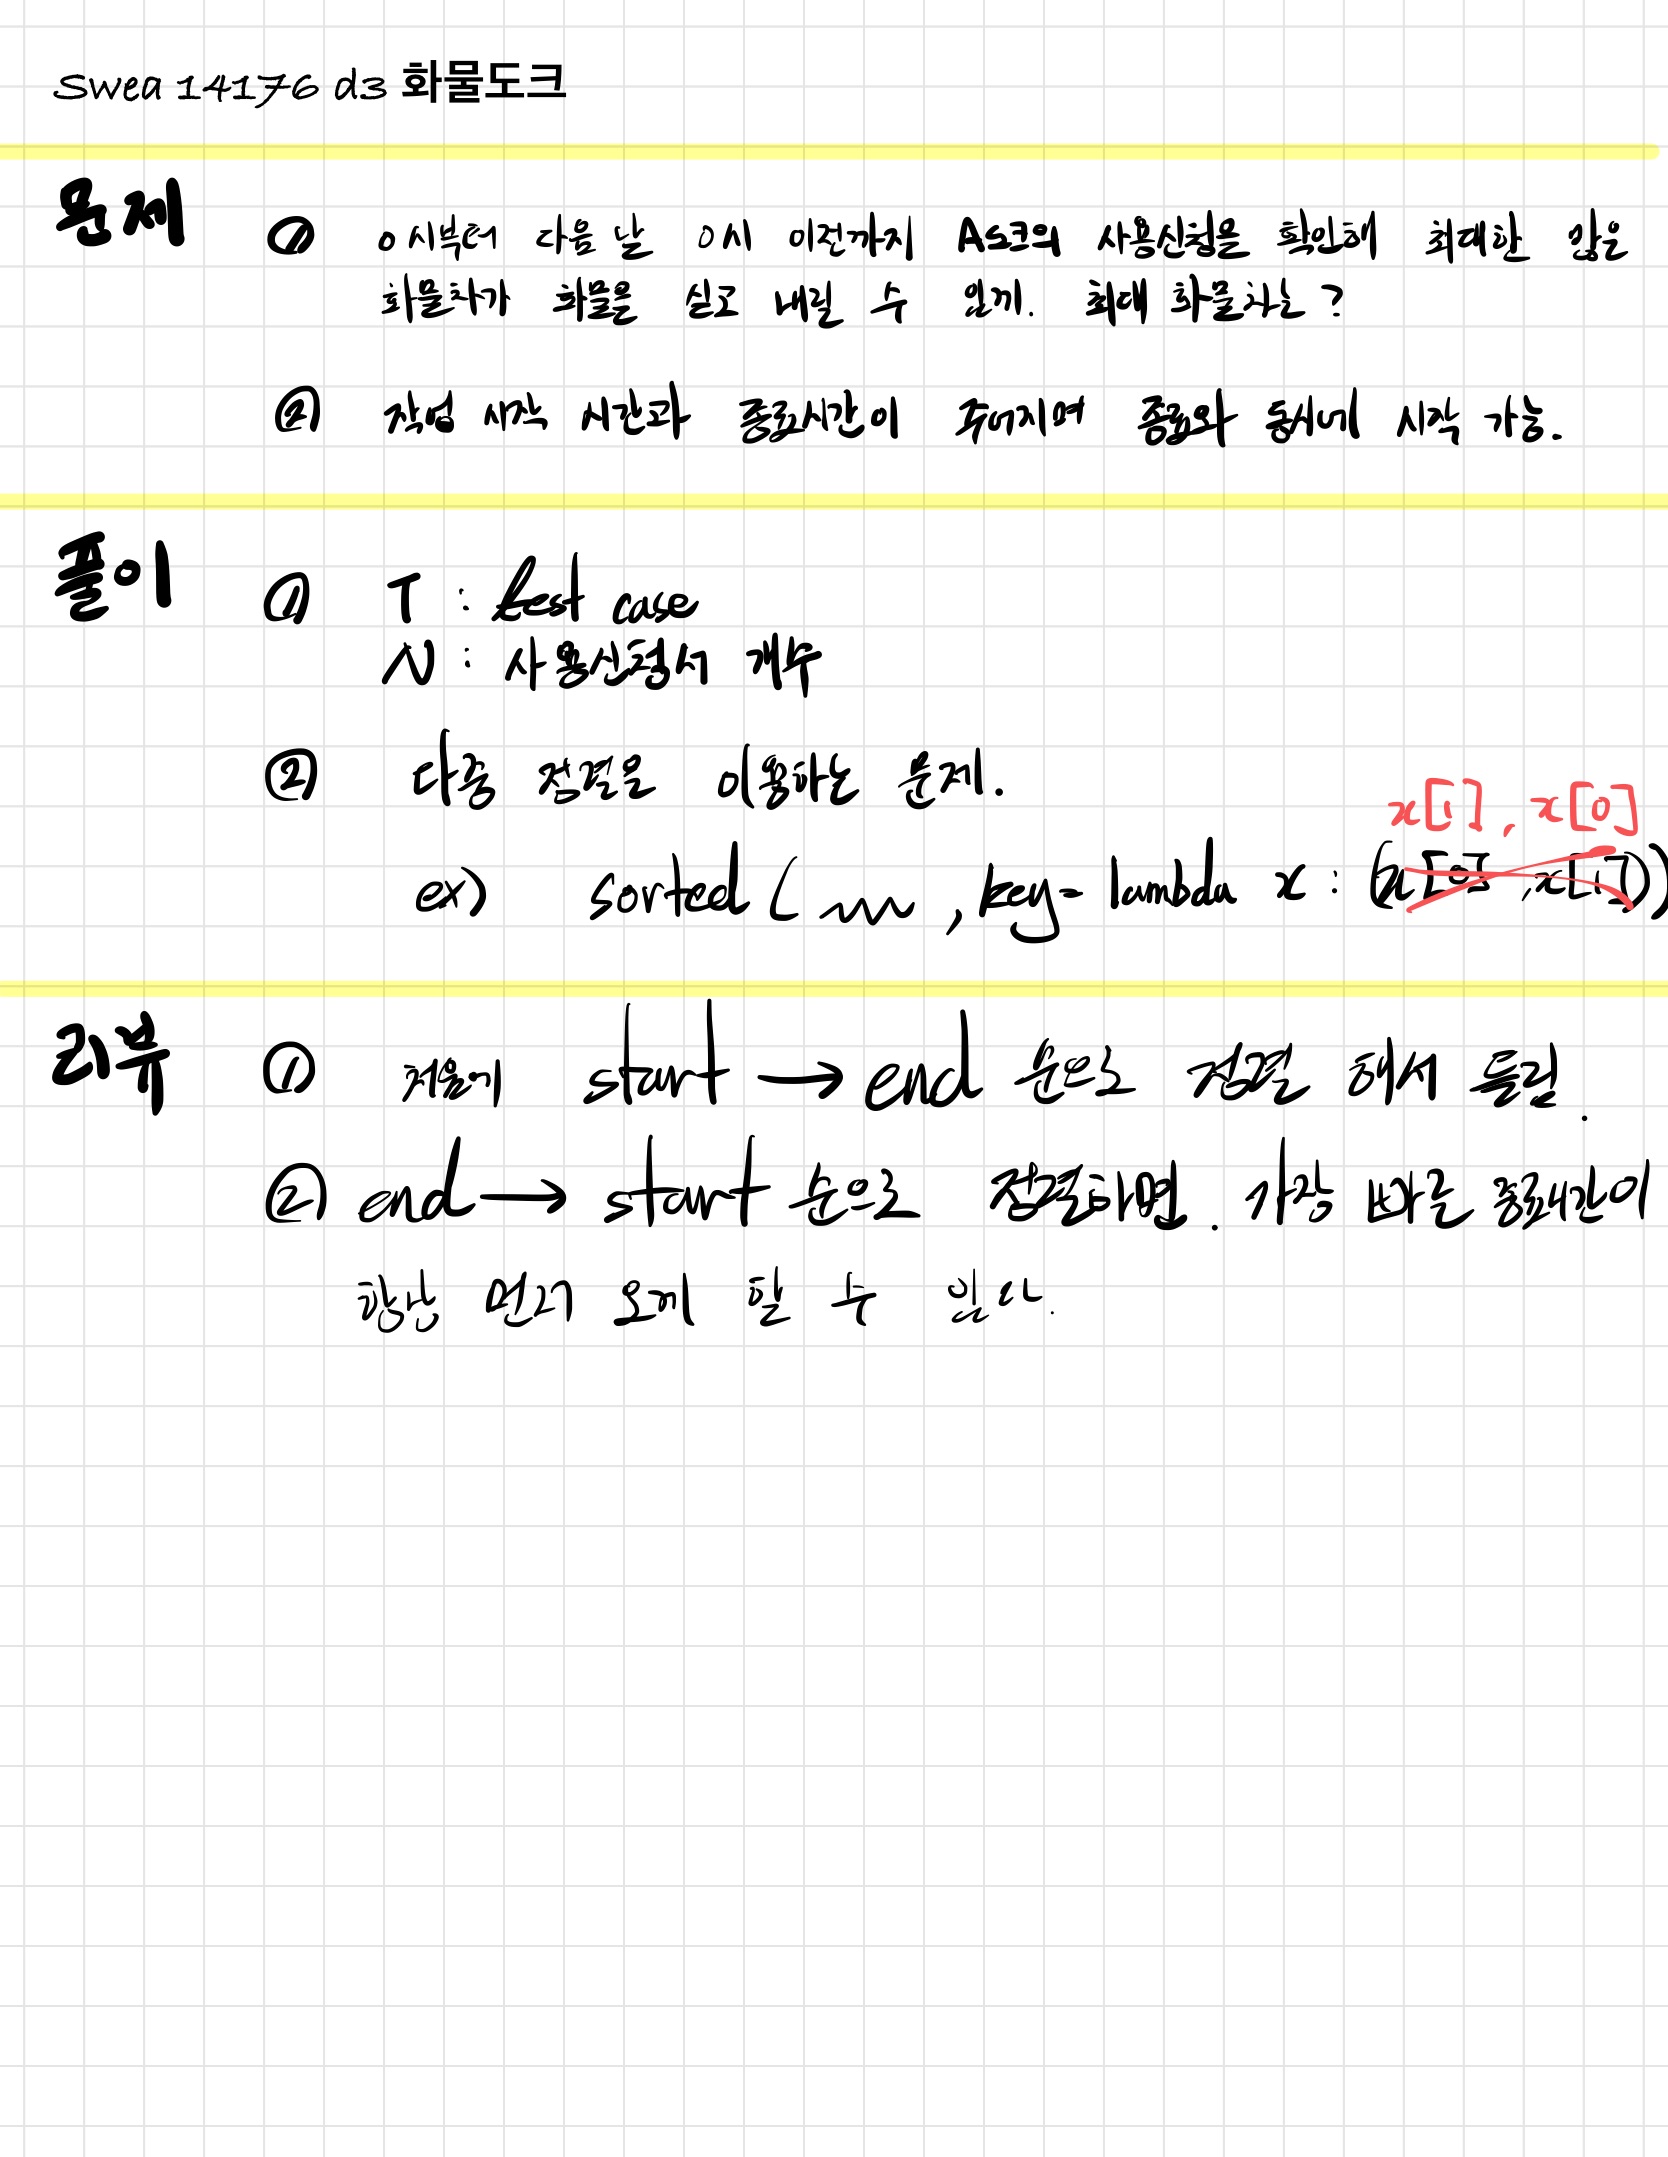 Swea 14176 d3 화물도크
문제 ① 0시부터 다음 날 0시 이전까지 A도크의 사용신청을 확인해 최대한 많은
화물차가 화물을 싣고 내릴 수 있게. 최대 화물차는?
② 작업 시작 시간과 종료시간이 주어지며 종료와 동시에 시작 가능.
풀이 ① T : test case
N : 사용신청서 개수
② 다중 정렬을 이용하는 문제.
x[1], x[0]
ex) sorted ( , key= lambda x : (x[0], x[1]))
리뷰 ① 처음에 start → end 순으로 정렬 해서 틀림.
② end → start 순으로 정렬하면. 가장 빠른 종료시간이
항상 먼저 오게 할 수 있다.